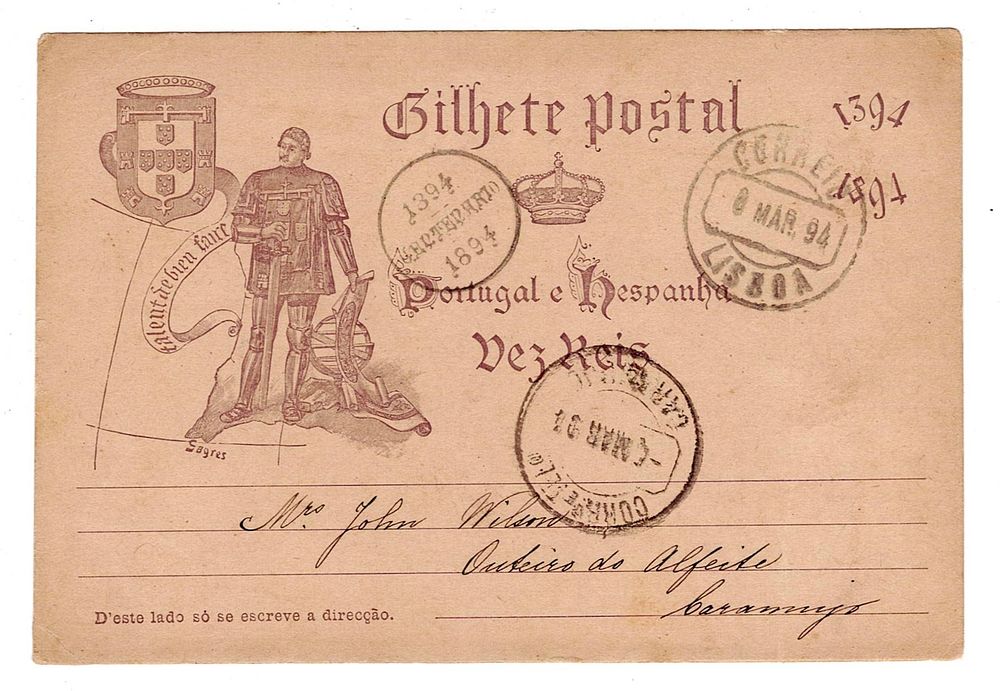 Bilhete Postal
1394
1894
Portugal e Hespanha
Dez Reis
talent de bien faire
Sagres
1394
CENTENARIO
1894
CORREIO
MAR. 94
LISBOA
CORRº E TELº
MAR 94
Mrs John Wilson
Outeiro do Alfeite
Caramujo
D'este lado só se escreve a direcção.